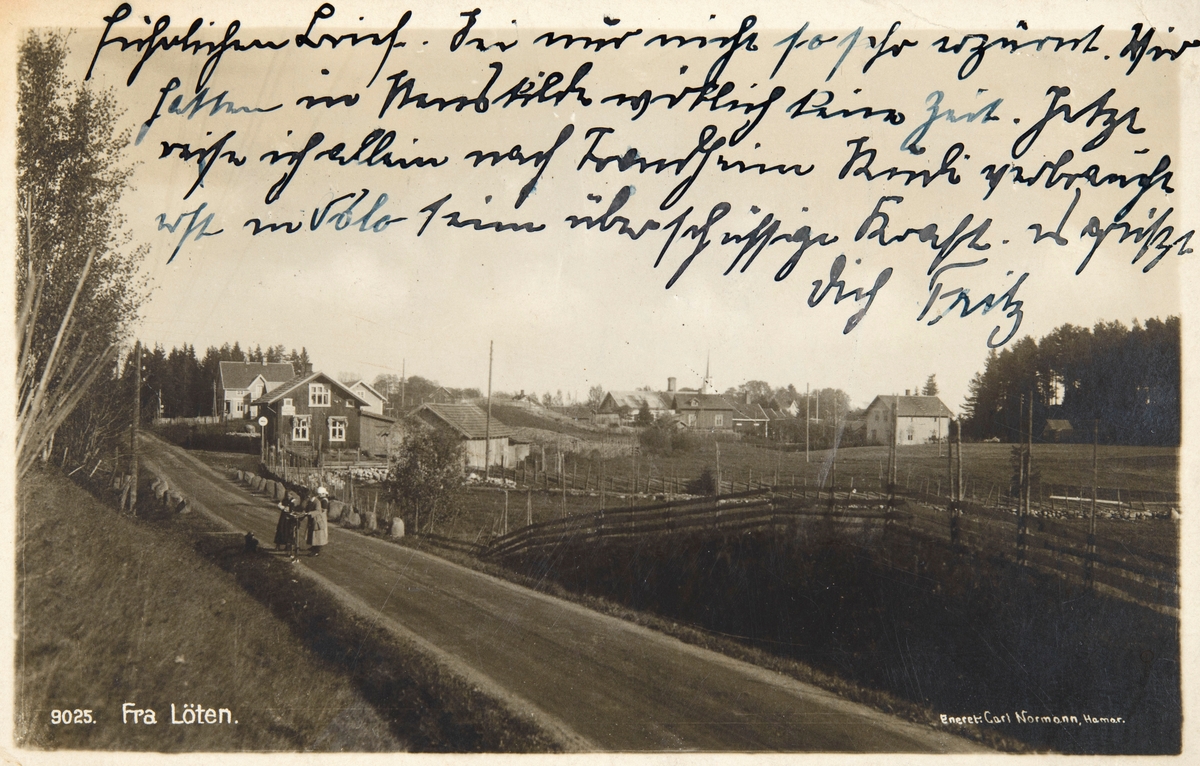 führlichen Brief. Sei nur nicht so sehr erzürnt. Wir
hatten in wirklich keine Zeit. Jetzt
reise ich allein nach Trondheim Rudi verbraucht
erst in Oslo seine überschüssige Kraft. es grüßt
Dich Fritz
9025. Fra Löten.
Eneret: Carl Normann, Hamar.